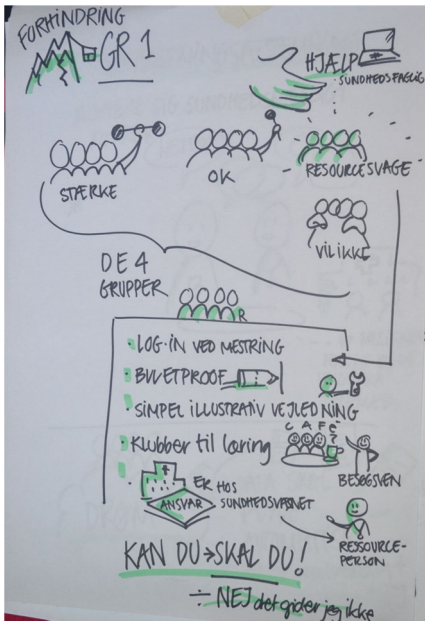 FORHINDRING
GR 1
HJÆLP
SUNDHEDSFAGLIG
STÆRKE
OK
RESOURCESVAGE
VIL IKKE
DE 4
GRUPPER
R
LOG-IN VED MESTRING
BULLETPROOF
SIMPEL ILLUSTRATIV VEJLEDNING
CAFE
Klubber til læring
BESØGSVEN
ER HOS
ANSVAR SUNDHEDSVÆSNET
RESSOURCE-
PERSON
KAN DU → SKAL DU!
÷ NEJ det gider jeg ikke